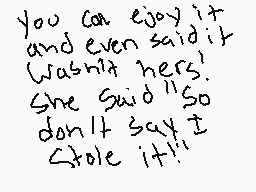 you can ejoy it
and even said it
wasn't hers!
she said "so
don't say I
stole it!"